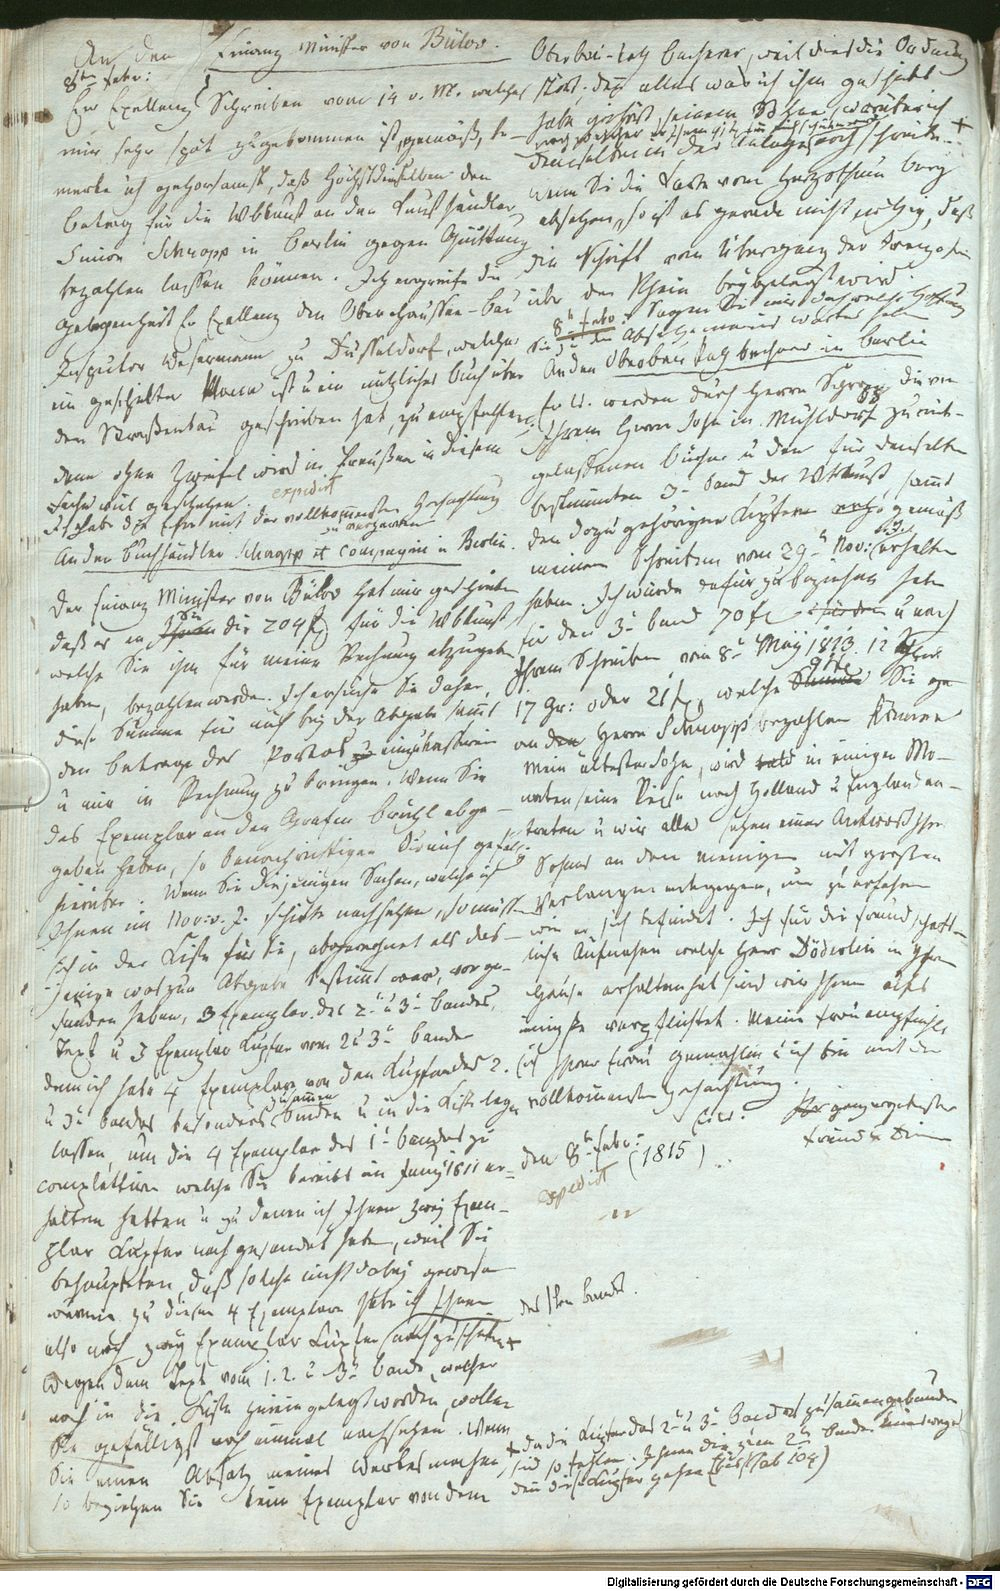 An den Finanz Minister von Bülow.
8ten Febr:
Er Exellenz Schreiben vom 14 v. M. welches
mir sehr spät zugekommen ist, gemäß, be-
merke ich gehorsamst, daß Höchstdieselben den
betrag für die Wbkunst an den Kunsthändler
Simon Schropp in Berlin gegen Quittung
bezahlen lassen können. Ich ergreife die
gelegenheit Er Exellenz den Oberchaussee-Bau
Inspector Wesermann zu Düsseldorf, welcher
ein geschikter Mann ist u ein nützliches buch über
den Straßenbau geschrieben hat, zu empfehlen,
denn ohne Zweifel wird in Preußen in diesem
Fache viel geschehen.
expedirt
Ich habe die Ehre mit der vollkommensten Hochachtung
zu verharren
An den Buchhändler Schropp et Compagnie in Berlin.
Der Finanz Minister von Bülow hat mir geschrieben
daß er an Sie die 204 f für die Wbkunst,
welche Sie ihm für meine Rechnung abzugeben
haben, bezahlen werde. Ich ersuche Sie daher,
diese Summe für mich bey der Abgabe samt
den betrage der Portos einzukassiren
u mir in Rechnung zu bringen. Wenn Sie
das Exemplar an den Grafen Brühl abge-
geben haben, so benachrichtigen Sie mich gefäl.
hierüber. Wenn Sie diejenigen Sachen, welche ich
Ihnen im Nov: v. J. schikte nachsehen, so müssen
sich in der Kiste für Sie, abgerechnet als das-
jenige was zur Abgabe bestimmt war, vorge-
funden haben, 3 Exemplar des 2n u 3n bandes,
Text u 3 Exemplar Kupfer vom 2 u 3n bande
denn ich habe 4 Exemplare von den Kupfer des 2.
u 3n bandes besonders zusammen binden u in die Kiste legen
lassen, um die 4 Exemplar des 1n bandes zu
complettiren welche Sie bereits im Juny 1811 er-
halten hatten u zu denen ich Ihnen zwey Exem-
plar Kupfer nachgesendet habe, weil Sie
behaupteten, daß solche nicht dabey gewesen
wären zu diesen 4 Exemplare habe ich Ihnen
also noch zwey Exemplar Kupfer nachzuschiken +
Wegen dem Text vom 1. 2. u 3n bande, welcher
noch in die Kiste hineingelegt worden, wollen
Sie gefälligst noch einmal nachsehen. Wenn
Sie einen Absatz meines Werkes machen,
so beziehen Sie kein Exemplar von dem
Oberbau-Rath Becherer, weil dies die Ordnung
stört; denn alles was ich ihm geschikt
habe gehört seinem Sohne, worüber ich
demselben in der Anlage noch schreibe.
Wenn Sie die Karte vom Herzogthum Berg
absetzen, so ist es gerade nicht nöthig, daß
die Schrift vom Übergang der Franzosen
über den Rhein beygelegt wird
8ten Febr: Sagen Sie mir doch welche Hoffnung
Sie zu den Absatze meines Werkes haben
An den Oberbau Rath Becherer in Berlin
Er W. werden durch Herrn Schropp die von
Ihrem Herrn Sohn in Mühldorf zurük-
gelassenen bücher u den für denselben
bestimmten 3n band der Wbkunst, samt
den dazugehörigen Kupfern gemäß
meinem Schreiben vom 29n Nov: v. J. erhalten
haben. Ich würde dafür zu beziehen haben
für den 3n band 20 f u nach
Ihrem Schreiben vom 8n May 1813. 12 Thlr
17 Gr: oder 21 f, welche Sie ge
an Herrn Schropp bezahlen können
Mein ältester Sohn, wird in einigen Mo-
naten seine Reise nach Holland u England an-
treten u wir alle sehen einer Antwort Ihres
Sohnes an den meinigen mit großem
Verlangen entgegen, um zu erfahren
wie er sich befindet. Ich für die freundschaft-
liche Aufnahme welche Herr Döderlein in Ihrem
Hause erhalten hat sind wir Ihnen aufs
innigste verpflichtet. Meine Frau empfiehlt
sich Ihrer Frau Gemahlin u ich bin mit der
vollkommensten Hochachtung.
Euer: ganz ergebenster
Freund u Diener
den 8n Febr:
(1815)
expedirt
des 1ten bandes.
+ da die Kupfer des 2n u 3n Bandes zusammengebunden
sind so fehlen Ihnen die zum 2n bande keineswegs
denn diese Kupfer gehen (bis Tab 104)
Digitalisierung gefördert durch die Deutsche Forschungsgemeinschaft - DFG